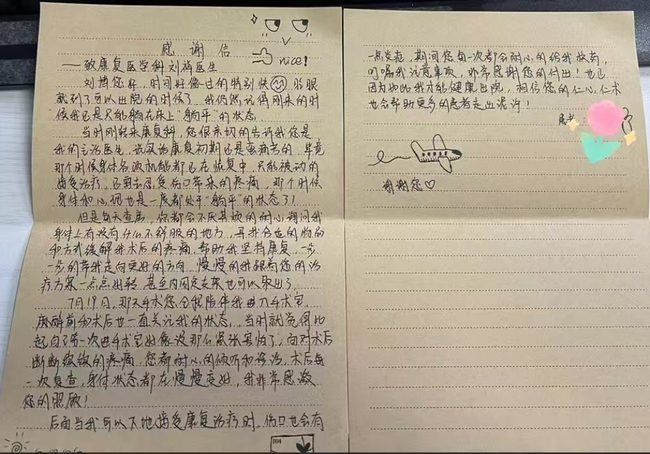 感谢信
nice!
——致康复医学科刘祥医生
刘博您好,时间好像过的特别快 眨眼
就到了可以出院的时候了,我仍然记得刚来的时
候我还是只能躺在床上"躺平"的状态。
当时刚转来康复科,您很亲切的告诉我您是
我的主治医生,说实话康复初期还是蛮痛苦的,毕竟
那个时候身体各项机能都还在恢复中,只能被动的
接受治疗,还要去忍受伤口带来的疼痛,那个时候
身体和心理也是一度都处于"躺平"的状态了!
但是每天查房,您都会不厌其烦的耐心询问我
身体上有没有什么不舒服的地方,寻找合适的
和方式缓解我术后的疼痛,帮助我坚持康复,一步
一步的带我走向更好的方向,慢慢的我跟着您的治
疗方案一点点好转,甚至内固定支架也可以取出了。
7月19日,那天手术您全程陪伴我进入手术室,
麻醉前和术后也一直关注我的状态,当时就觉得比
起自己第一次进手术室好像没那么紧张害怕了,面对术后
断断续续的疼痛,您都耐心的倾听和诊治,术后每
一次复查,身体状态都在慢慢变好,我非常感激
您的照顾!
后面当我可以下地接受康复治疗时,伤口也会有
一点发炎,期间您每一次都会耐心的给我换药,
叮嘱我注意事项,非常感谢您的付出!也正
因为如此我才能健康出院,相信您的仁心仁术
也会帮助更多的患者走出泥泞!
谢谢您♡